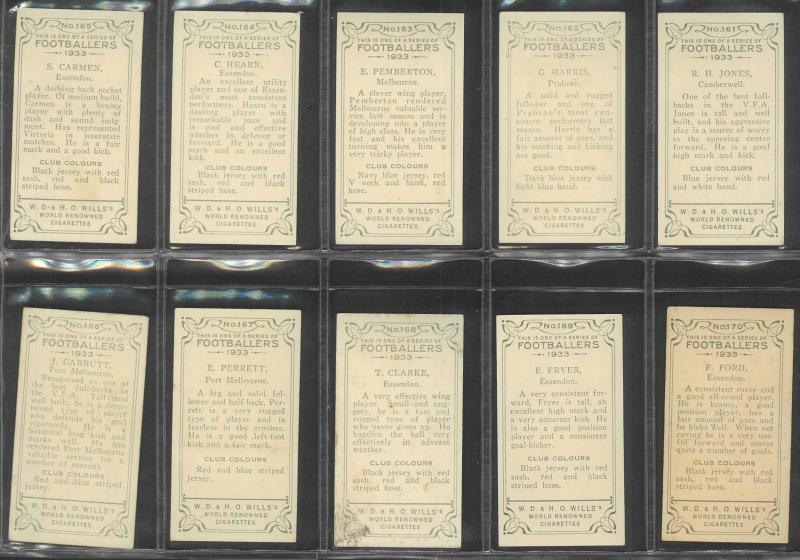 No. 165
THIS IS ONE OF A SERIES OF
FOOTBALLERS
1933
S. CARMEN,
Essendon.
A dashing back pocket
player. Of medium build,
Carmen is a brainy
player with plenty of
dash and sound judg-
ment. Has represented
Victoria in interstate
matches. He is a fair
mark and a good kick.
CLUB COLOURS
Black jersey with red
sash, red and black
striped hose.
W. D. & H. O. WILLS's
WORLD RENOWNED
CIGARETTES
No. 164
THIS IS ONE OF A SERIES OF
FOOTBALLERS
1933
C. HEARN,
Essendon.
An excellent utility
player and one of Essen-
don's most consistent
performers. Hearn is a
dashing player with
remarkable pace and
is cool and effective
whether in defence or
forward. He is a good
mark and an excellent
kick.
CLUB COLOURS
Black jersey with red
sash, red and black
striped hose.
W. D. & H. O. WILLS's
WORLD RENOWNED
CIGARETTES
No. 163
THIS IS ONE OF A SERIES OF
FOOTBALLERS
1933
E. PEMBERTON,
Melbourne.
A clever wing player,
Pemberton rendered
Melbourne valuable
service last season and is
developing into a player
of high class. He is very
fast and his excellent
turning makes him a
very tricky player.
CLUB COLOURS
Navy blue jersey, red
V neck and band, red
hose.
W. D. & H. O. WILLS's
WORLD RENOWNED
CIGARETTES
No. 162
THIS IS ONE OF A SERIES OF
FOOTBALLERS
1933
G. HARRIS,
Prahran.
A solid and rugged
follower and one of
Prahran's most con-
sistent performers last
season. Harris has a
fair amount of pace, and
his marking and kicking
are good.
CLUB COLOURS
Dark blue jersey with
light blue band.
W. D. & H. O. WILLS's
WORLD RENOWNED
CIGARETTES
No. 161
THIS IS ONE OF A SERIES OF
FOOTBALLERS
1933
R. H. JONES,
Camberwell.
One of the best full-
backs in the V.F.A.
Jones is tall and well
built, and his aggressive
play is a source of worry
to the opposing centre
forward. He is a good
high mark and kick.
CLUB COLOURS
Blue jersey with red
and white band.
W. D. & H. O. WILLS's
WORLD RENOWNED
CIGARETTES
No. 166
THIS IS ONE OF A SERIES OF
FOOTBALLERS
1933
J. GARBUTT,
Port Melbourne.
Recognised as one of
the best full-backs in
the V.F.A. Tall and
well built, he is a deter-
mined type of player
who defends his goal
vigorously. He is a
beautiful long kick and
marks well. He has
rendered Port Melbourne
valuable service for a
number of seasons.
CLUB COLOURS
Red and blue striped
jersey.
W. D. & H. O. WILLS's
WORLD RENOWNED
CIGARETTES
No. 167
THIS IS ONE OF A SERIES OF
FOOTBALLERS
1933
E. PERRETT,
Port Melbourne.
A big and solid fol-
lower and half-back, Per-
rett is a very rugged
type of player and is
fearless in the crushes.
He is a good left-foot
kick and a fair mark.
CLUB COLOURS
Red and blue striped
jersey.
W. D. & H. O. WILLS's
WORLD RENOWNED
CIGARETTES
No. 168
THIS IS ONE OF A SERIES OF
FOOTBALLERS
1933
T. CLARKE,
Essendon.
A very effective wing
player, small and nug-
gety, he is a fast and
rugged type of player
who never gives up. He
handles the ball very
effectively in adverse
weather.
CLUB COLOURS
Black jersey with red
sash, red and black
striped hose.
W. D. & H. O. WILLS's
WORLD RENOWNED
CIGARETTES
No. 169
THIS IS ONE OF A SERIES OF
FOOTBALLERS
1933
E. FRYER,
Essendon.
A very consistent for-
ward. Fryer is tall, an
excellent high mark and
a very accurate kick. He
is also a good position
player and a consistent
goal-kicker.
CLUB COLOURS
Black jersey with red
sash, red and black
striped hose.
W. D. & H. O. WILLS's
WORLD RENOWNED
CIGARETTES
No. 170
THIS IS ONE OF A SERIES OF
FOOTBALLERS
1933
F. FORD,
Essendon.
A consistent rover and
a good all-round player.
He is brainy, a good
position player, has a
fair amount of pace and
he kicks Well. When not
roving he is a very use-
ful forward and scores
quite a number of goals.
CLUB COLOURS
Black jersey with red
sash, red and black
striped hose.
W. D. & H. O. WILLS's
WORLD RENOWNED
CIGARETTES